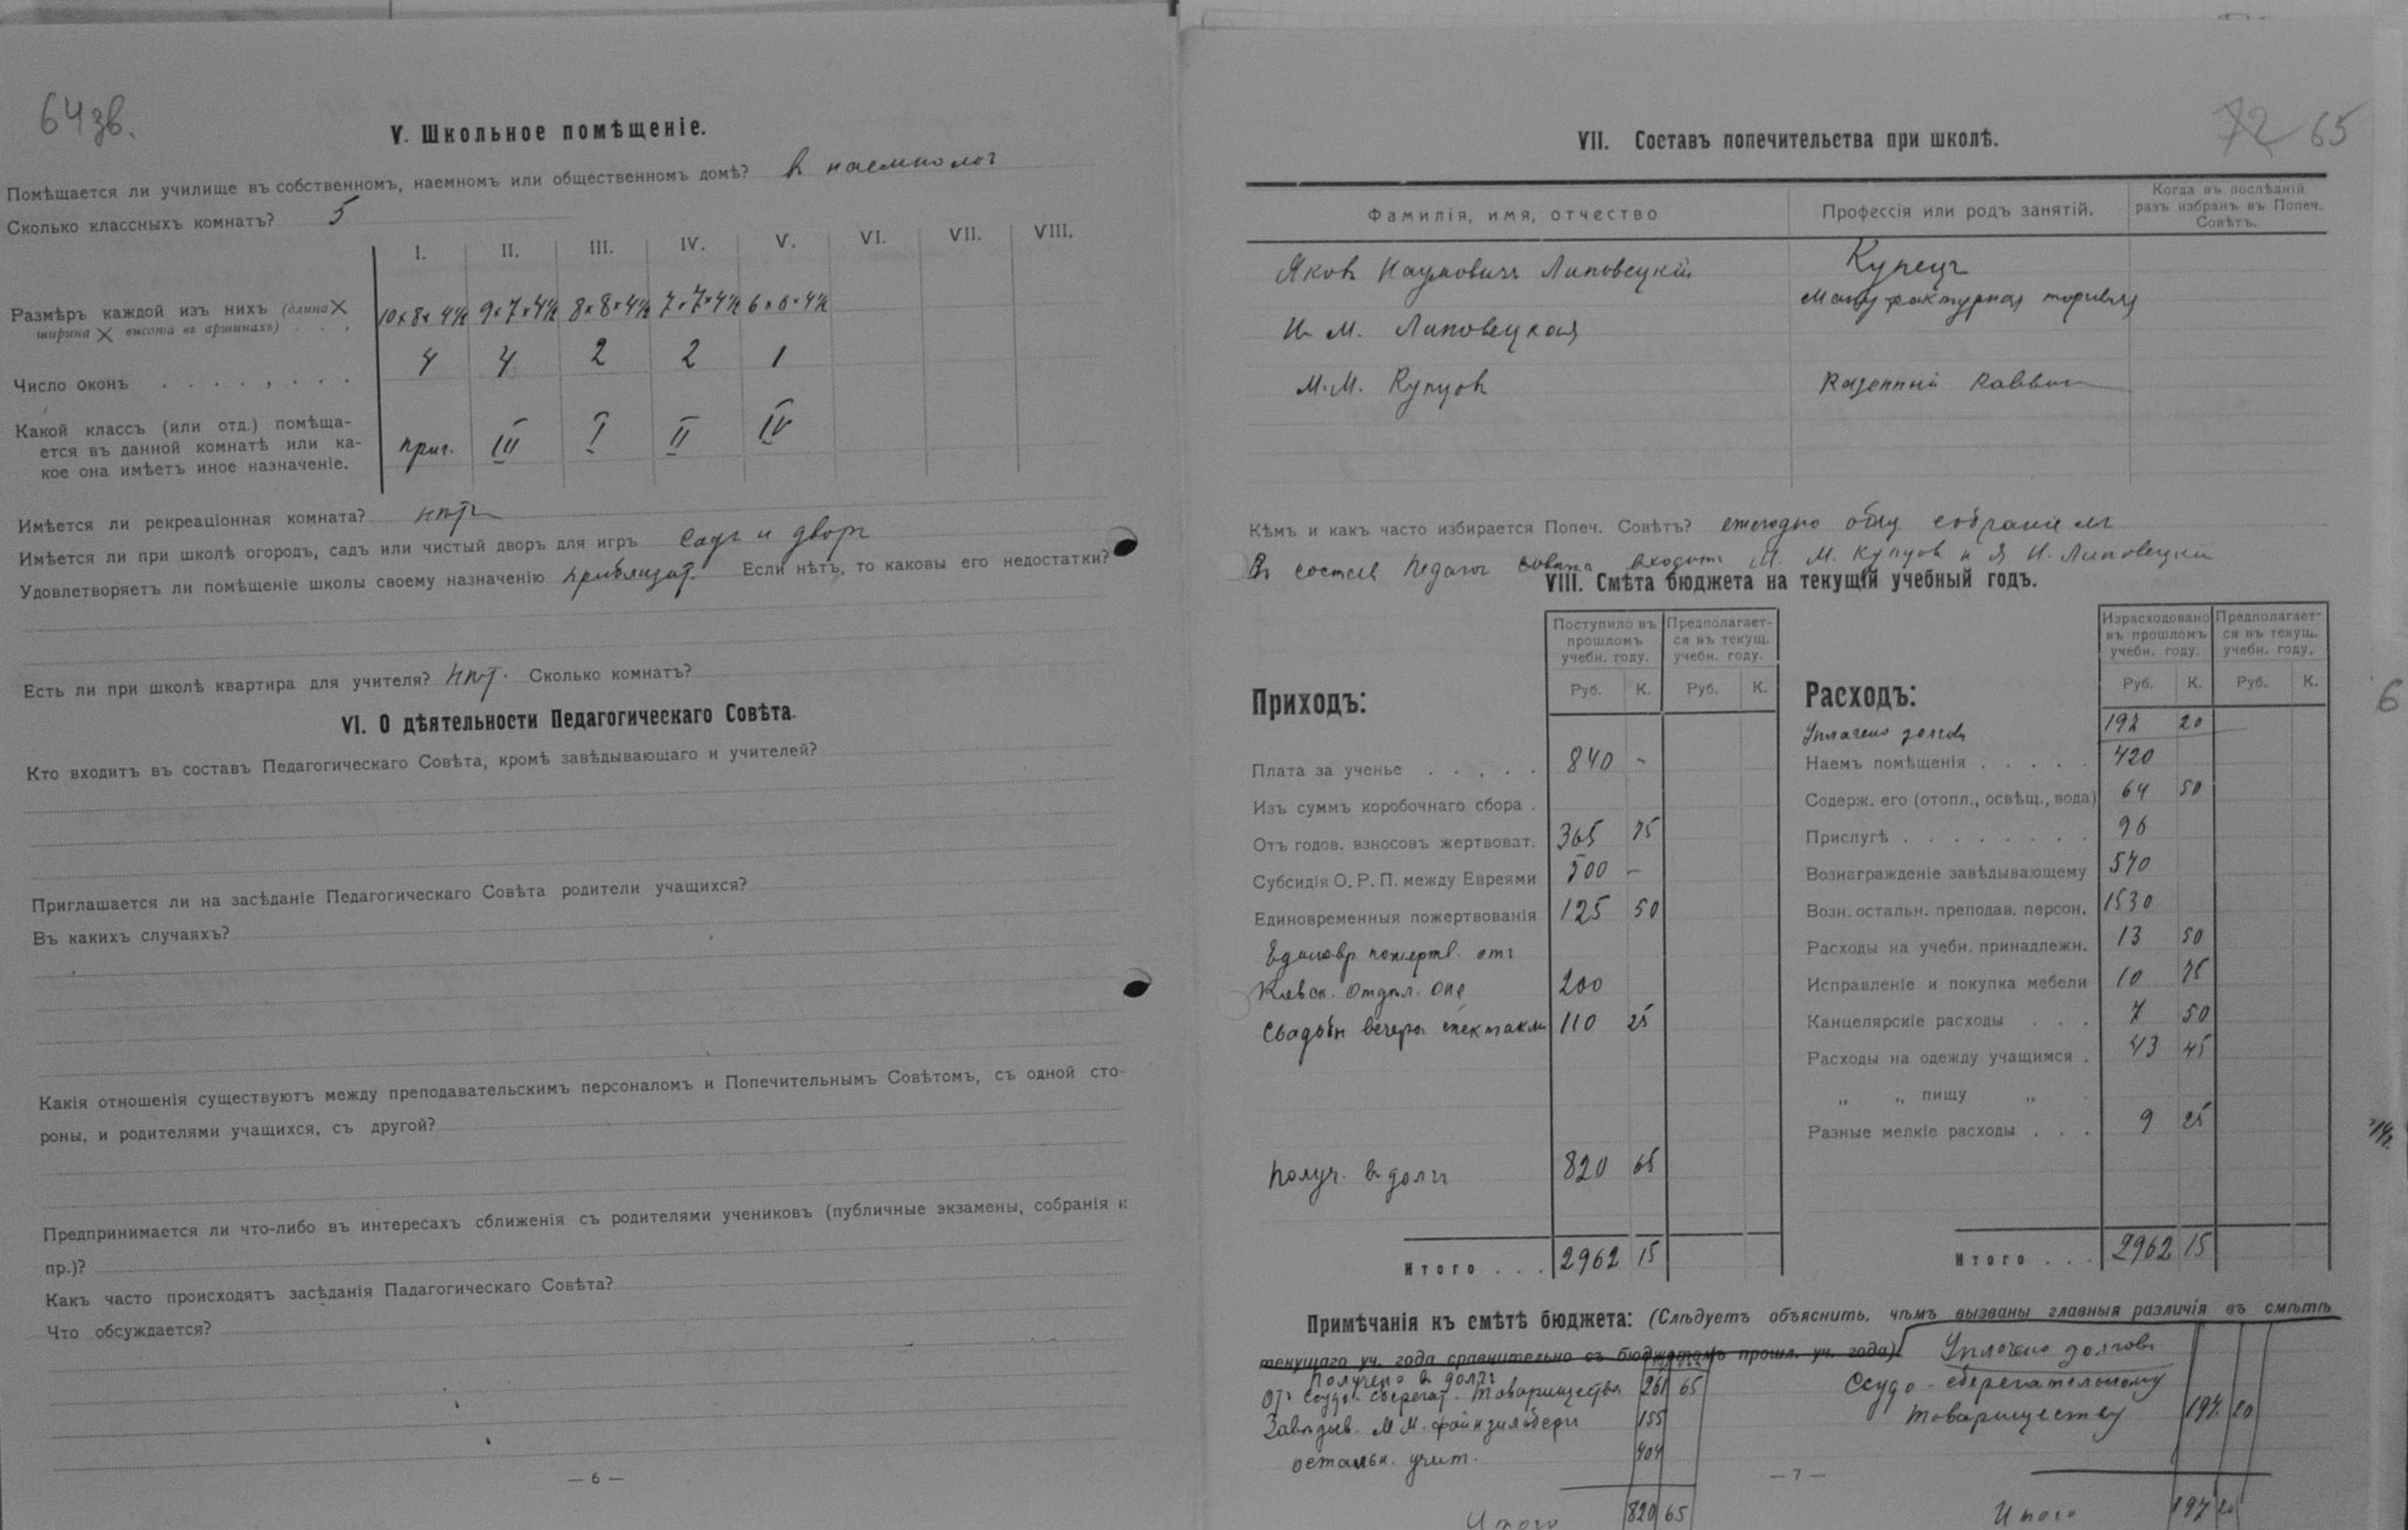 64 зв.
V. Школьное помѣщеніе.
Помѣщается ли училище въ собственномъ, наемномъ или общественномъ домѣ? в наемномъ
Сколько классныхъ комнатъ? 5
I. II. III. IV. V. VI. VII. VIII.
Размѣръ каждой изъ нихъ (длина ×
ширина × высота въ аршинахъ) . . .
10×8×4½ 9×7×4½ 8×8×4½ 7×7×4½ 6×6×4½
Число оконъ . . . . , . . . 4 4 2 2 1
Какой классъ (или отд.) помѣща-
ется въ данной комнатѣ или ка-
кое она имѣетъ иное назначеніе.
приг. III I II IV
Имѣется ли рекреаціонная комната? нѣтъ
Имѣется ли при школѣ огородъ, садъ или чистый дворъ для игръ садъ и дворъ
Удовлетворяетъ ли помѣщеніе школы своему назначенію приблизит. Если нѣтъ, то каковы его недостатки?
Есть ли при школѣ квартира для учителя? нѣт. Сколько комнатъ?
VI. О дѣятельности Педагогическаго Совѣта.
Кто входитъ въ составъ Педагогическаго Совѣта, кромѣ завѣдывающаго и учителей?
Приглашается ли на засѣданіе Педагогическаго Совѣта родители учащихся?
Въ какихъ случаяхъ?
Какія отношенія существуютъ между преподавательскимъ персоналомъ и Попечительнымъ Совѣтомъ, съ одной сто-
роны, и родителями учащихся, съ другой?
Предпринимается ли что-либо въ интересахъ сближенія съ родителями учениковъ (публичные экзамены, собранія и
пр.)?
Какъ часто происходятъ засѣданія Падагогическаго Совѣта?
Что обсуждается?
— 6 —
72 65
VII. Составъ попечительства при школѣ.
Фамилія, имя, отчество
Профессія или родъ занятій.
Когда въ послѣдній
разъ избранъ въ Попеч.
Совѣтъ.
Яковъ Наумовичъ Липовецкій Купецъ
Мануфактурная торговля
И. М. Липовецкая
М. М. Купцовъ Казенный Раввинъ
Кѣмъ и какъ часто избирается Попеч. Совѣтъ? ежегодно общ. собраніемъ
Въ составъ Педагог совѣта входитъ М. М. Купцовъ и Я Н. Липовецкій
VIII. Смѣта бюджета на текущій учебный годъ.
Приходъ:
Поступило въ
прошломъ
учебн. году.
Предполагает-
ся въ текущ.
учебн. году.
Руб. К. Руб. К.
Плата за ученье . . , . . 840 -
Изъ суммъ коробочнаго сбора .
Отъ годов. взносовъ жертвоват. 365 75
Субсидія О. Р. П. между Евреями 500 —
Единовременныя пожертвованія 125 50
Единовр. пожертв. отъ
Кіевск. Отдѣл. ОПЕ 200
Свадьбы вечера спектакли 110 25
Получ. въ долгъ 820 65
Итого . . . 2962 15
Расходъ:
Израсходовано
въ прошломъ
учебн. году.
Предполагает-
ся въ текущ.
учебн. году.
Руб. К. Руб. К.
Уплачено долговъ 197 20
Наемъ помѣщенія . . . . . 420
Содерж. его (отопл., освѣщ., вода) 64 50
Прислугѣ . . . . . . . . 96
Вознагражденіе завѣдывающему 570
Возн. остальн. преподав. персон. 1530
Расходы на учебн. принадлежн. 13 50
Исправленіе и покупка мебели 10 75
Канцелярскіе расходы . . . 7 50
Расходы на одежду учащимся . 43 45
„ „ пищу „
Разные мелкіе расходы . . . 9 25
Итого . . . 2962 15
6
Примѣчанія къ смѣтѣ бюджета: (Слѣдуетъ объяснить, чѣмъ вызваны главныя различія въ смѣтѣ
текущаго уч. года сравнительно съ бюджетомъ прошл. уч. года)
Получено въ долгъ
Отъ ссудо-сберегат. товарищества 261 65
Завѣдыв. М М. Файнзильберу 155
остальн. учит. 404
Итого 820 65
Уплочено долговъ
Ссудо-сберегательному
товариществу 197 20
Итого 197 20
— 7 —